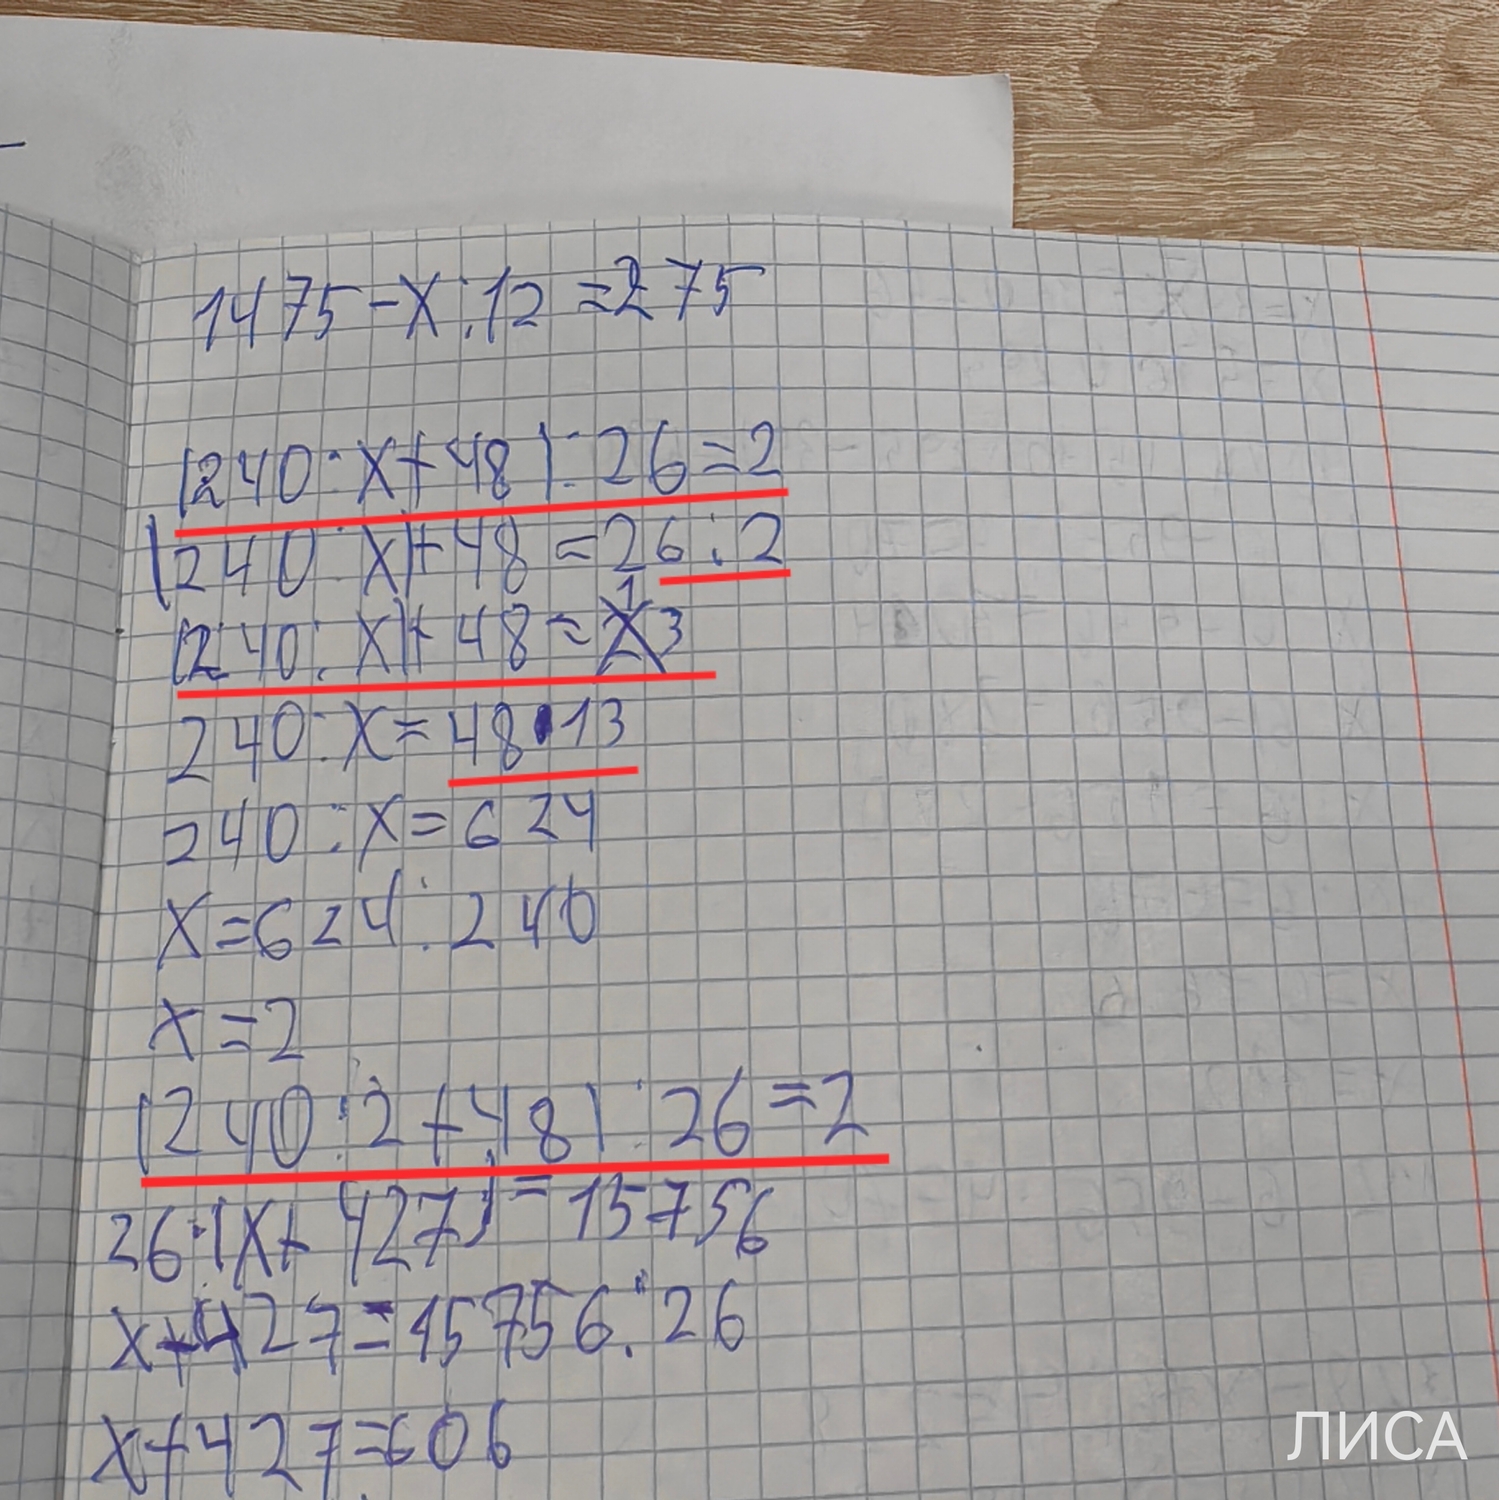 1475-x:12=275
(240:x+48):26=2
(240:x)+48=26:2
(240:x)+48=13
240:x=48·13
240:x=624
x=624:240
x=2
(240:2+48):26=2
26·(x+427)=15756
x+427=15756:26
x+427=606
ЛИСА